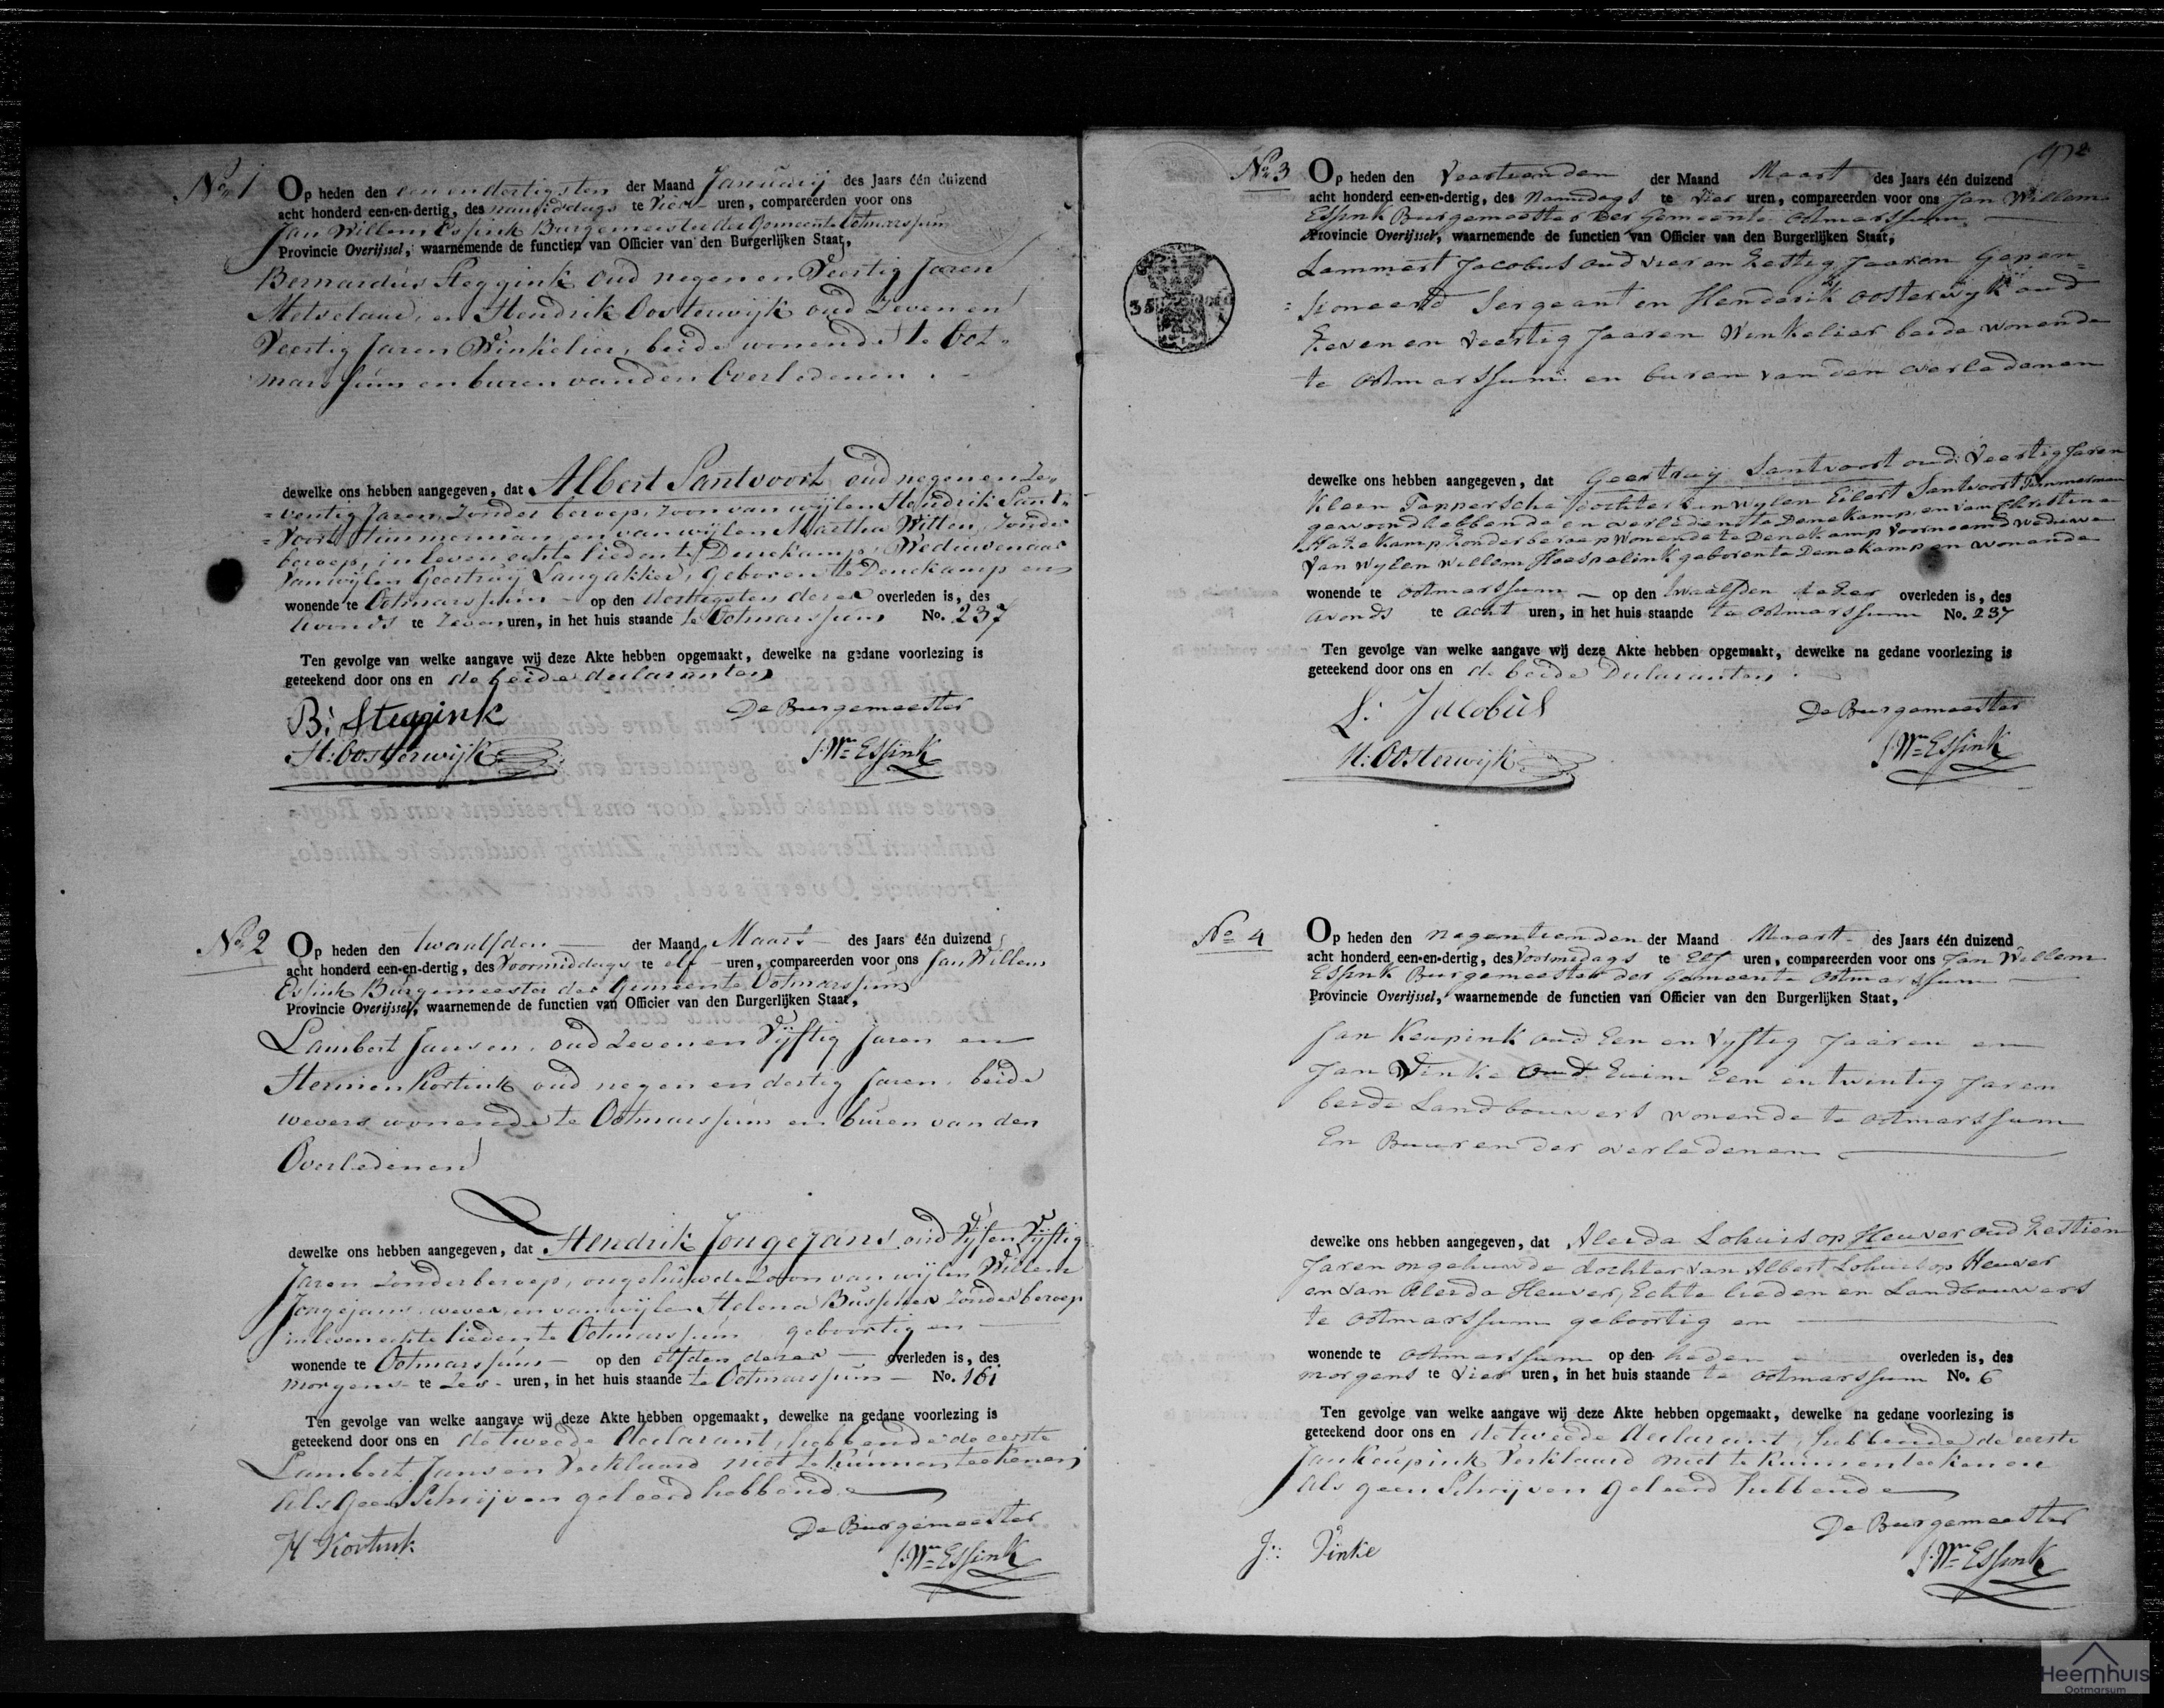 No. 1
Op heden den een en dertigsten der Maand Januarij des Jaars één duizend
acht honderd een-en-dertig, des namiddags te vier uren, compareerden voor ons
Jan Willem Essink Burgemeester der Gemeente Ootmarssum
Provincie Overijssel, waarnemende de functien van Officier van den Burgerlijken Staat,
Bernardus Steggink oud negen en Veertig Jaren
Metselaar, en Hendrik Oosterwijk oud Zeven en
Veertig Jaren Winkelier, beide wonende te Oot-
marssum en buren van den Overledenen.
dewelke ons hebben aangegeven, dat Albert Santvoort oud negen en Ze-
ventig Jaren, Zonder beroep, Zoon van wijlen Hendrik Sant-
voort timmerman, en van wijlen Martha Witten, Zonder
beroep, in leven echte lieden te Denekamp, Weduwenaar
van wijlen Geertruij Langakker, Geboren te Denekamp en
wonende te Ootmarssum op den dertigsten dezer overleden is, des
Avonds te Zeven uren, in het huis staande te Ootmarssum No. 237
Ten gevolge van welke aangave wij deze Akte hebben opgemaakt, dewelke na gedane voorlezing is
geteekend door ons en de beide declaranten
B: Steggink De Burgemeester
H: Oosterwijk J: Wm Essink
No. 2
Op heden den twaalfden der Maand Maart des Jaars één duizend
acht honderd een-en-dertig, des Voormiddags te elf uren, compareerden voor ons Jan Willem
Essink Burgemeester der Gemeente Ootmarssum
Provincie Overijssel, waarnemende de functien van Officier van den Burgerlijken Staat,
Lambert Jansen, oud Zeven en Vijftig Jaren en
Hermen Kortink oud negen en dertig Jaren, beide
wevers wonende te Ootmarssum en buren van den
Overledenen
dewelke ons hebben aangegeven, dat Hendrik Jongejans oud Vijf en Vijftig
Jaren Zonder beroep, ongehuwde Zoon van wijlen Willem
Jongejans, wever, en van wijlen Helena Busscher Zonder beroep
in leven echte lieden te Ootmarssum geboortig en
wonende te Ootmarssum op den elfden dezer overleden is, des
morgens te Zes uren, in het huis staande te Ootmarssum No. 161
Ten gevolge van welke aangave wij deze Akte hebben opgemaakt, dewelke na gedane voorlezing is
geteekend door ons en de tweede declarant, hebbende de eerste
Lambert Jansen Verklaard niet te kunnen teekenen
Als Geen Schrijven geleerd hebbende
H Kortink De Burgemeester
J: Wm Essink
No. 3
Op heden den Veertienden der Maand Maart des Jaars één duizend
acht honderd een-en-dertig, des Namiddags te vier uren, compareerden voor ons Jan Willem
Essink Burgemeester Der Gemeente Ootmarssum
Provincie Overijssel, waarnemende de functien van Officier van den Burgerlijken Staat,
Lammert Jacobus oud vier en Zestig Jaaren Gepen-
sioneerd Sergeant en Henderik Oosterwijk oud
Zeven en veertig Jaaren Winkelier beide wonende
te Ootmarssum en buren van den overledenen
dewelke ons hebben aangegeven, dat Geertruij Santvoort oud Veertig Jaren
Kleen Tappersche dochter van wylen Eilert Santvoort Timmerman
gewoond hebbende en overleden te Denekamp, en van Christina
Hazekamp Zonder beroep Wonende te Denekamp Voornoemd weduwe
van wylen Willem Hoespelink geboren te Denekamp en wonende
wonende te Ootmarssum op den twaalfden dezer overleden is, des
avonds te acht uren, in het huis staande te Ootmarssum No. 237
Ten gevolge van welke aangave wij deze Akte hebben opgemaakt, dewelke na gedane voorlezing is
geteekend door ons en de beide Declaranten
L: Jacobus De Burgemeester
H: Oosterwijk J: Wm Essink
No 4
Op heden den negentienden der Maand Maart des Jaars één duizend
acht honderd een-en-dertig, des Voormidags te Elf uren, compareerden voor ons Jan Willem
Essink Burgemeester der Gemeente Ootmarssum
Provincie Overijssel, waarnemende de functien van Officier van den Burgerlijken Staat,
Jan Keupink oud Een en vyftig Jaaren en
Jan Vinke oud Ruim Een en twintig Jaren
beide Landbouwers wonende te Ootmarssum
En Buuren der overledenen
dewelke ons hebben aangegeven, dat Aleida Lohuis op Heuver oud Zestien
Jaren ongehuwde dochter van Albert Lohuis op Heuver
en van Aleida Heuver, Echte lieden en Landbouwers
te Ootmarssum geboortig en
wonende te Ootmarssum op den heden overleden is, des
morgens te vier uren, in het huis staande te Ootmarssum No. 6
Ten gevolge van welke aangave wij deze Akte hebben opgemaakt, dewelke na gedane voorlezing is
geteekend door ons en de tweede declarant, hebbende de eerste
Jan Keupink Verklaard niet te kunnen teekenen
Als geen Schrijven Geleerd hebbende
De Burgemeester
J: Vinke J: Wm Essink
Heemhuis
Ootmarsum